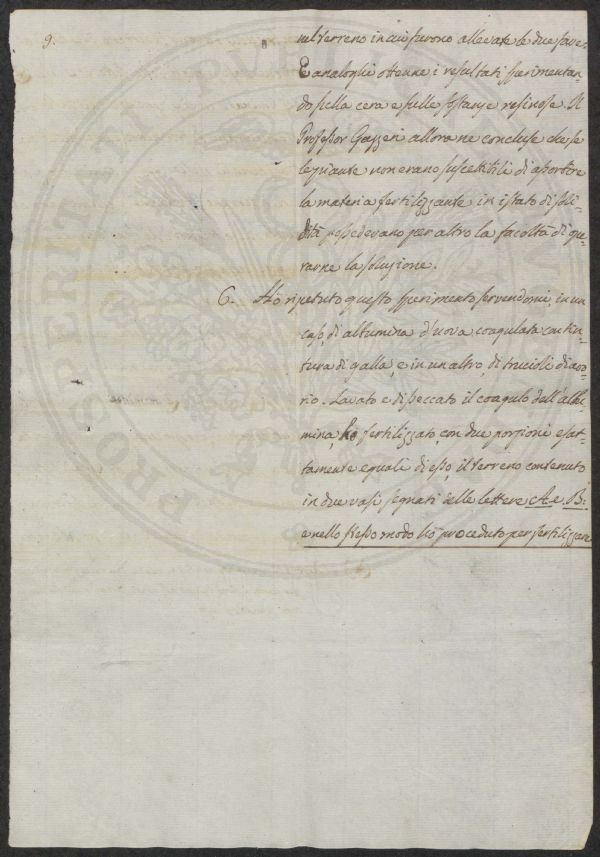 9.
nel terreno in cui furono allevate le due fave.
E analoghi ottenne i resultati sperimentan-
do sulla cera e sulle sostanze resinose. Il
Professor Gazzeri allora ne concluse che se
le piante non erano suscettibili di assorbire
la materia fertilizzante in istato di soli-
dità possedevano per altro la facoltà di
rarne la soluzione.
6. Hò ripetuto questo sperimento servendomi, in un
caso, di albumina d'uova coagulata con tin-
tura di galla, e in un altro, di trucioli di avo-
rio. Lavato e disseccato il coagulo dell'albu-
mina, ho fertilizzato, con due porzioni esat-
tamente eguali di esso, il terreno contenuto
in due vasi segnati delle lettere A. e B.
e nello stesso modo hò proceduto per fertilizzare
PROSPERITATI PVBL